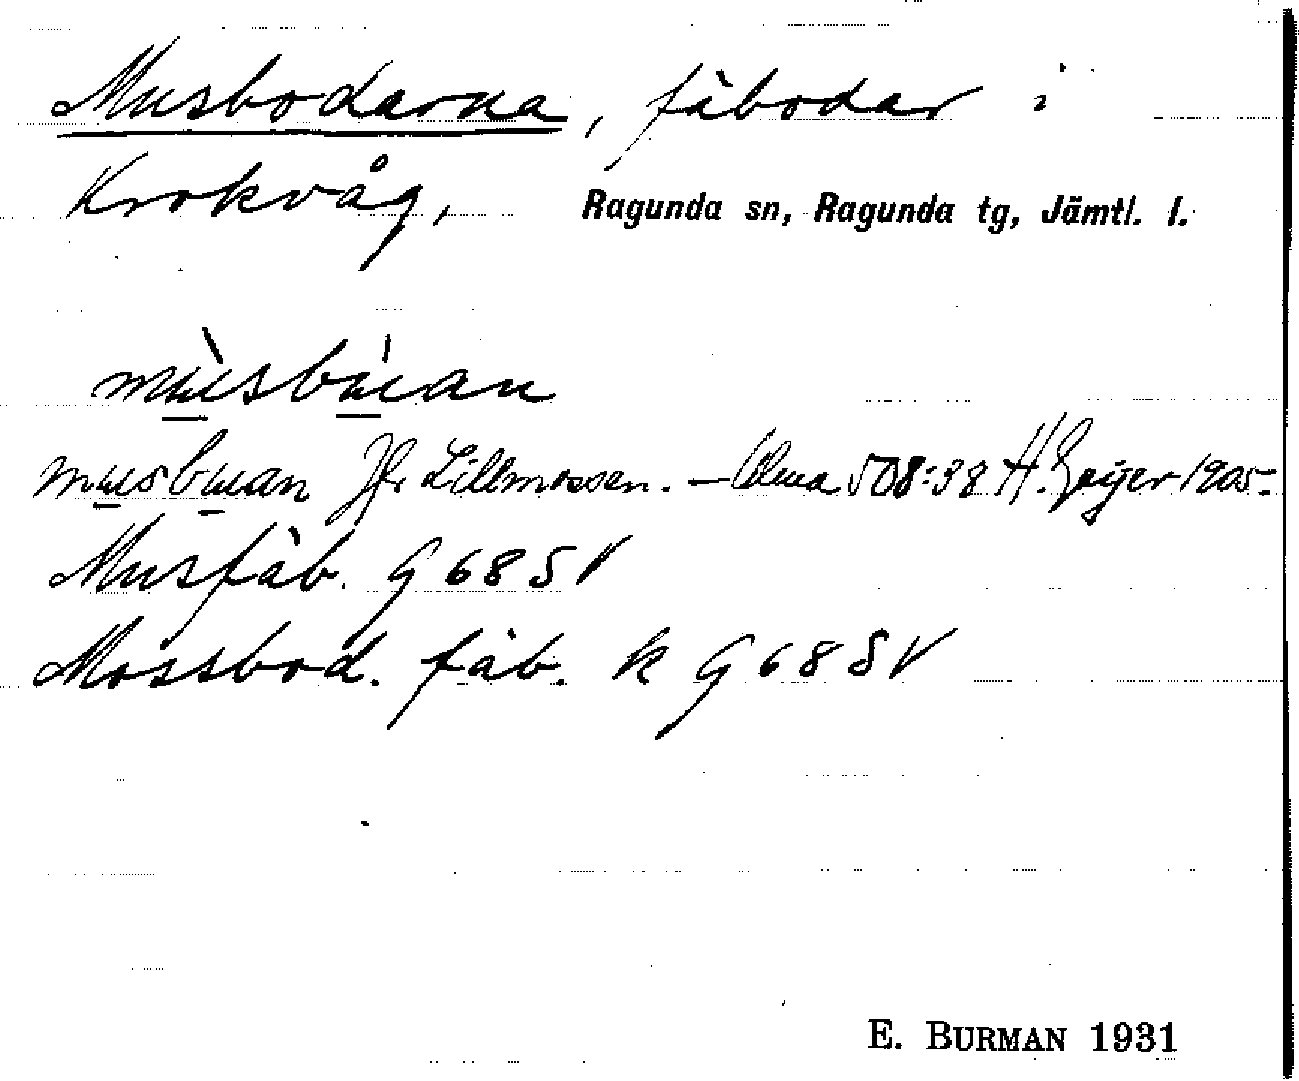 Musbodarna, fäbodar i
Krokvåg, Ragunda sn, Ragunda tg, Jämtl. l.
mùsbúan
musbuan Jfr Lillmossen. – Ulma 508:38 H. Geijer 1905.
Musfäb. G 68 SV
Mossbod. fäb. k G 68 SV
E. BURMAN 1931